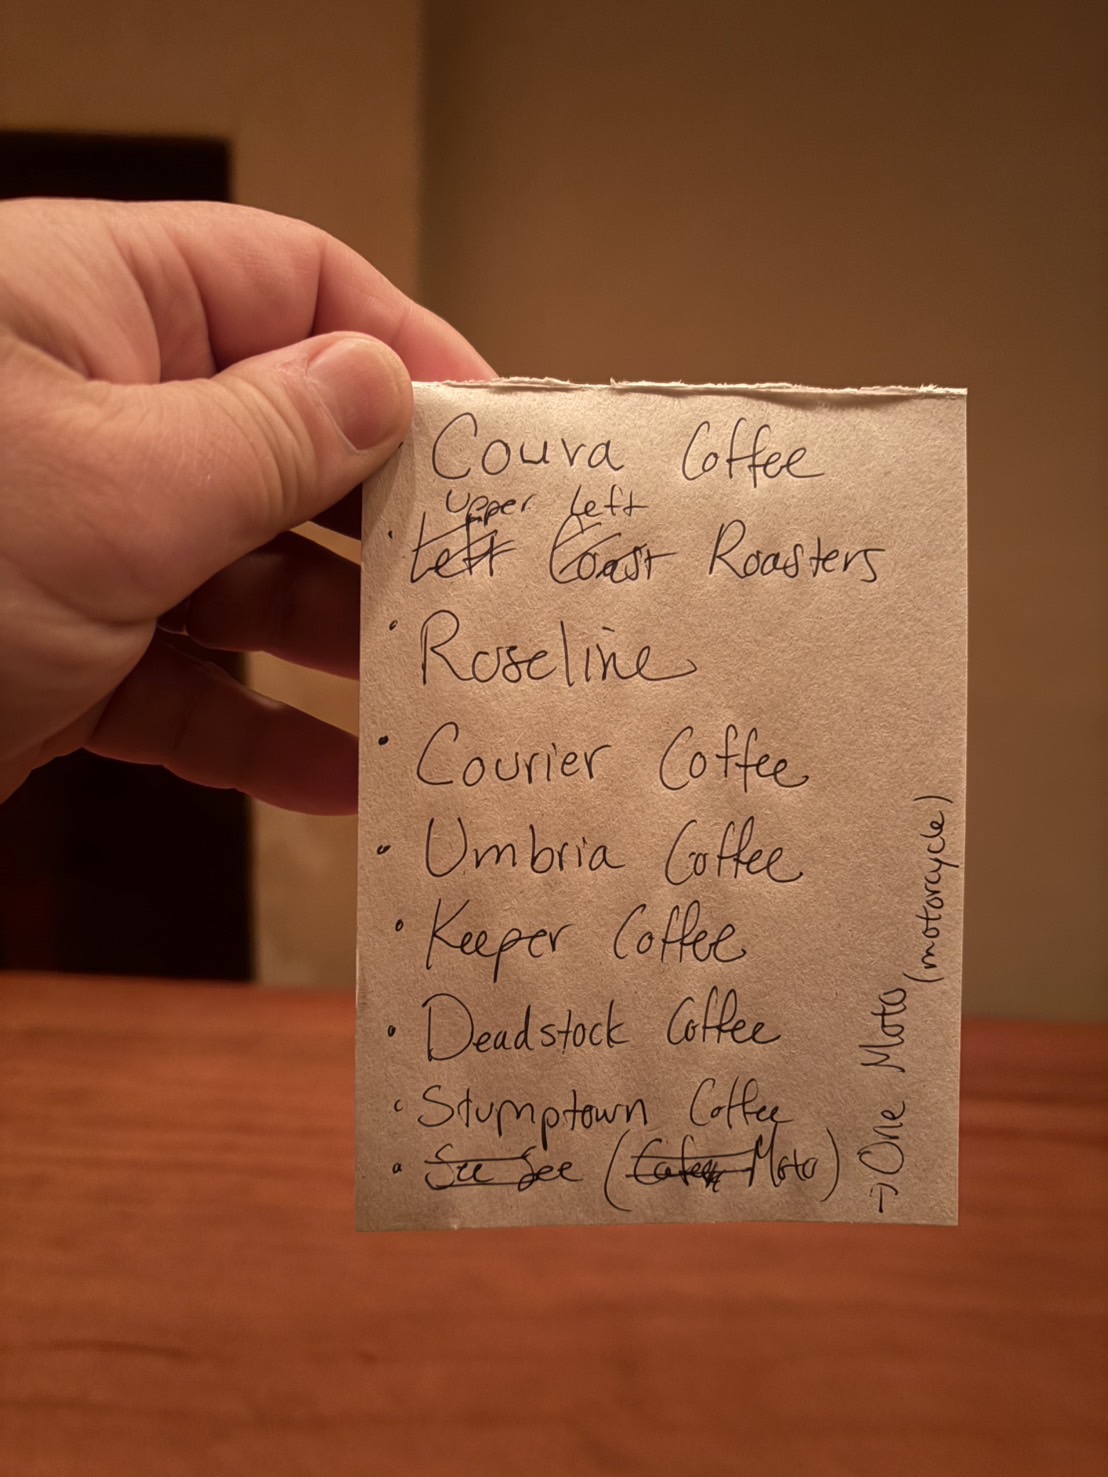 Couva Coffee
Upper Left
Left Coast Roasters
Roseline
Courier Coffee
Umbria Coffee
Keeper Coffee
Deadstock Coffee
Stumptown Coffee
See See (Moto)
→ One Moto (motorcycle)